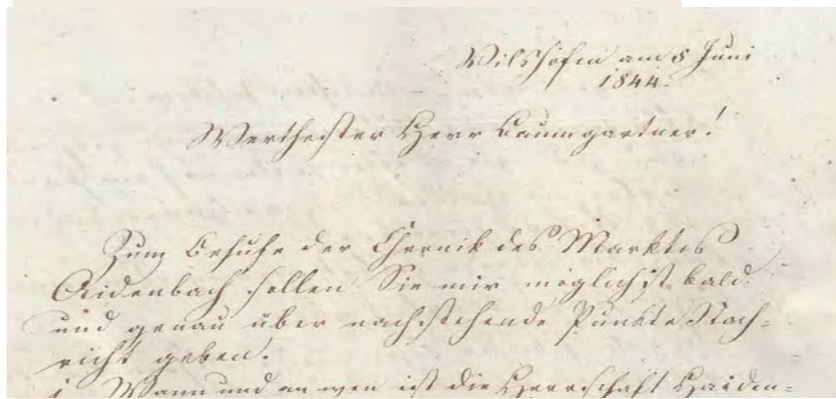 Vilshofen am 8 Juni
1844.
Werthester Herr Baumgartner!
Zum Behufe der Chronik des Marktes
Aidenbach sollen Sie mir möglichst bald
und genau über nachstehende Punkte Nach=
richt geben.
1. Wann und an wen ist die Herrschaft Haiden=